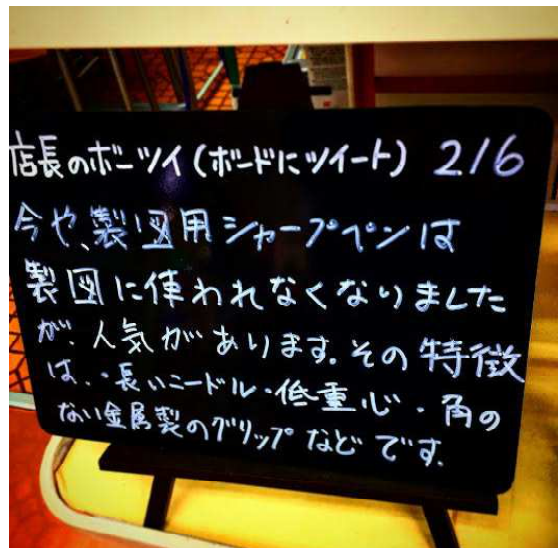 店長のボーツイ(ボードにツイート) 216
今や、製図用シャープペンは
製図に使われなくなりました
が、人気があります。その特徴
は、・長いニードル・低重心・角の
ない金属製のグリップなどです。